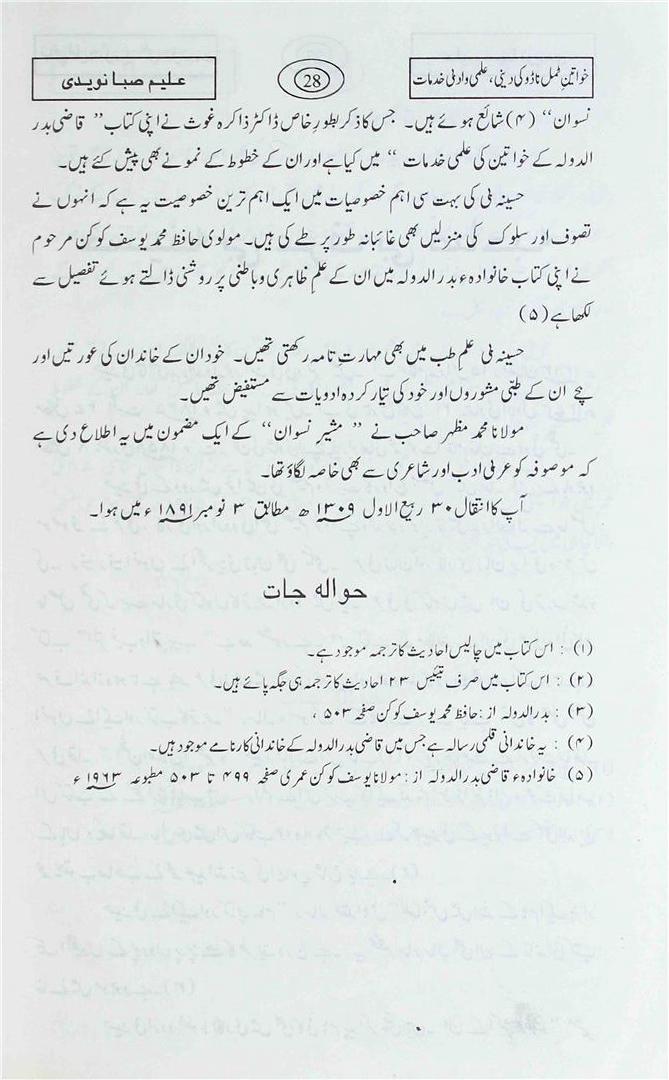 خواتینِ ٹمل ناڈو کی دینی، علمی و ادبی خدمات
28
علیم صبا نویدی
نسوان‘‘ (۴) شائع ہوئے ہیں۔ جس کا ذکر بطورِ خاص ڈاکٹر ذاکرہ غوث نے اپنی کتاب ’’ قاضی بدر
الدولہ کے خواتین کی علمی خدمات ‘‘ میں کیا ہے اور ان کے خطوط کے نمونے بھی پیش کئے ہیں۔
حسینہ بی کی بہت سی اہم خصوصیات میں ایک اہم ترین خصوصیت یہ ہے کہ انہوں نے
تصوف اور سلوک کی منزلیں بھی غائبانہ طور پر طے کی ہیں۔ مولوی حافظ محمد یوسف کوکن مرحوم
نے اپنی کتاب خانوادہء بدر الدولہ میں ان کے علمِ ظاہری و باطنی پر روشنی ڈالتے ہوئے تفصیل سے
لکھا ہے (۵)
حسینہ بی علمِ طب میں بھی مہارتِ تامہ رکھتی تھیں۔ خود ان کے خاندان کی عورتیں اور
بچے ان کے طبّی مشوروں اور خود کی تیار کردہ ادویات سے مستفیض تھیں۔
مولانا محمد مظہر صاحب نے ’’ مشیرِ نسوان ‘‘ کے ایک مضمون میں یہ اطلاع دی ہے
کہ موصوفہ کو عربی ادب اور شاعری سے بھی خاصہ لگاؤ تھا۔
آپ کا انتقال ۳۰ ربیع الاول ۱۳۰۹ ھ مطابق ۳ نومبر ۱۸۹۱ ء میں ہوا۔
حوالہ جات
(۱) : اس کتاب میں چالیس احادیث کا ترجمہ موجود ہے۔
(۲) : اس کتاب میں صرف تیئیس ۲۳ احادیث کا ترجمہ ہی جگہ پائے ہیں۔
(۳) : بدر الدولہ از : حافظ محمد یوسف کوکن صفحہ ۵۰۳ ،
(۴) : یہ خاندانی قلمی رسالہ ہے جس میں قاضی بدر الدولہ کے خاندانی کارنامے موجود ہیں۔
(۵) خانوادہء قاضی بدر الدولہ از : مولانا یوسف کوکن عمری صفحہ ۴۹۹ تا ۵۰۳ مطبوعہ ۱۹۶۳ ء